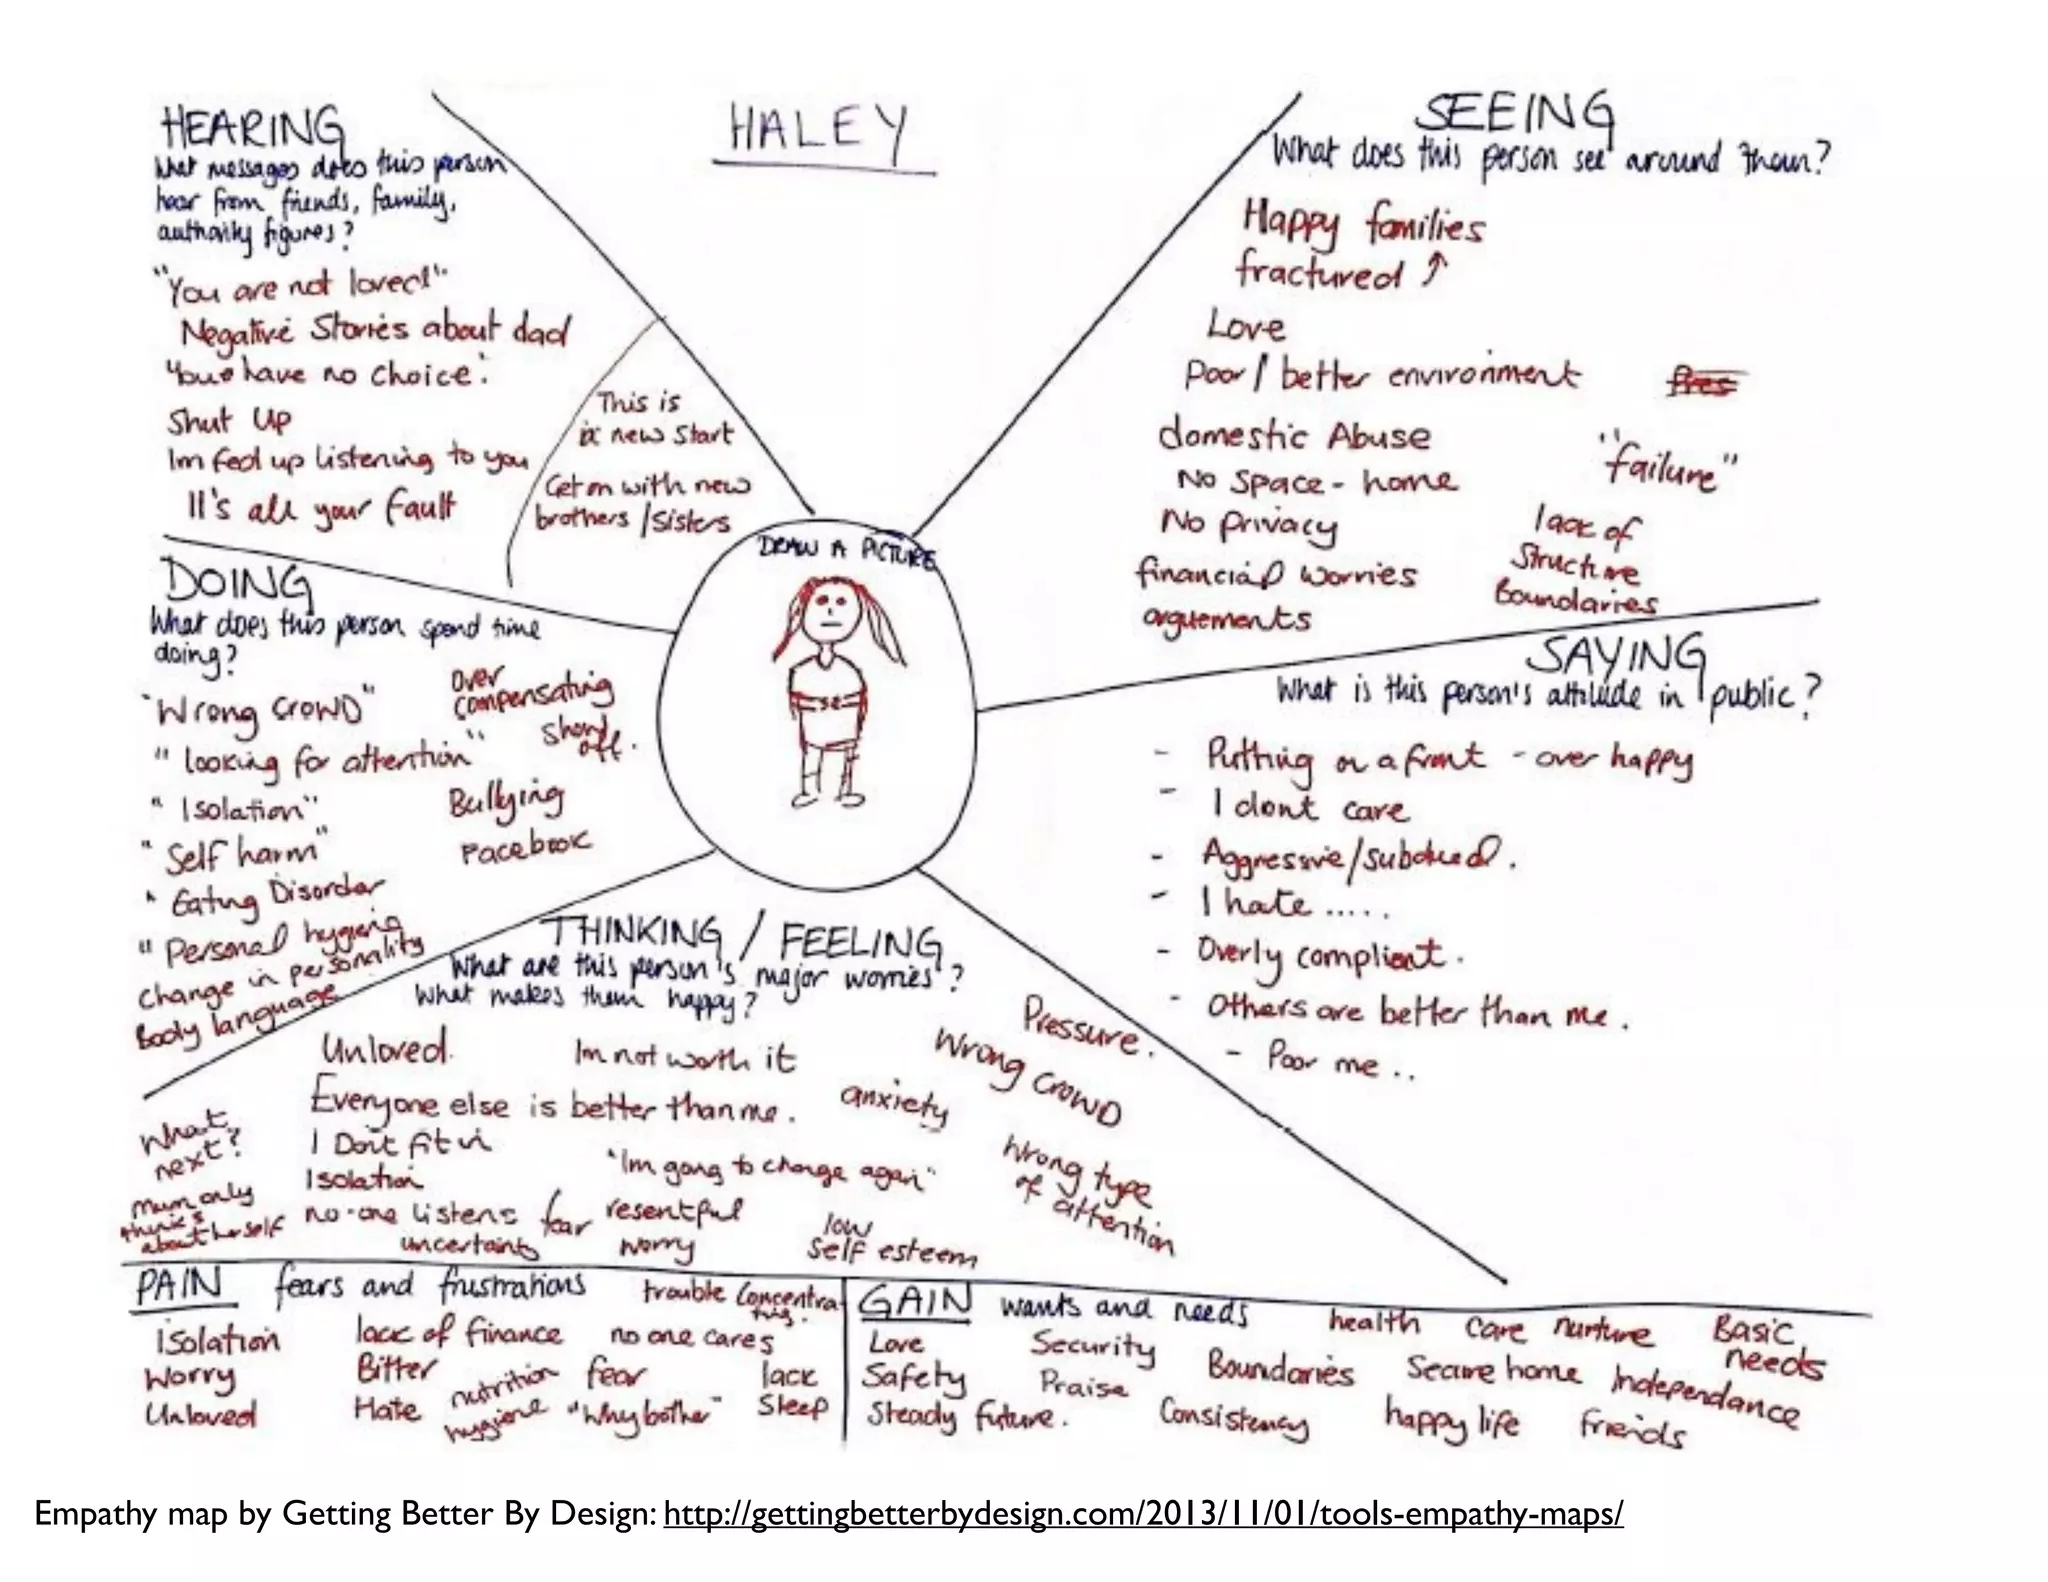 HALEY
HEARING
What messages does this person
hear from friends, family,
authority figures?
"You are not loved"
Negative Stories about dad
You have no choice.
Shut Up
Im fed up listening to you
It's all your fault
This is
a new start
Get on with new
brothers / sisters
SEEING
What does this person see around them?
Happy families
fractured ↑
Love
Poor / better environment
domestic Abuse
"failure"
No Space - home
No Privacy
lack of
Structure
Boundaries
financial worries
arguements
DRAW A PICTURE
DOING
What does this person spend time
doing?
"Wrong CROWD"
over
compensating
"looking for attention"
show
off.
"Isolation"
Bullying
"Self harm"
Facebook
" Eating Disorder
" Personal hygiene
Change in personality
Body language
SAYING
What is this person's attitude in public?
- Putting on a front - over happy
- I dont care
- Aggressive/subdued.
- I hate .....
- Overly complient.
- Others are better than me.
- Poor me ..
THINKING / FEELING
What are this person's major worries?
What makes them happy?
Unloved.
Im not worth it
Pressure.
Wrong CROWD
Everyone else is better than me.
anxiety
I Don't fit in
"Im going to change again"
Wrong type
of attention
Isolation
What
next?
mum only
thinks
about herself
no-one listens
fear
resentful
uncertainty
worry
low
self esteem
PAIN fears and frustrations
trouble Concentra
ting.
Isolation
lack of finance
no one cares
Worry
Bitter
nutrition
fear
lack
Sleep
Unloved
Hate
hygiene
"Why bother"
GAIN wants and needs
health
care
nurture
Basic
needs
Love
Security
Boundaries
Secure home
Independance
Safety
Praise
Steady future.
Consistency
happy life
friends
Empathy map by Getting Better By Design: http://gettingbetterbydesign.com/2013/11/01/tools-empathy-maps/